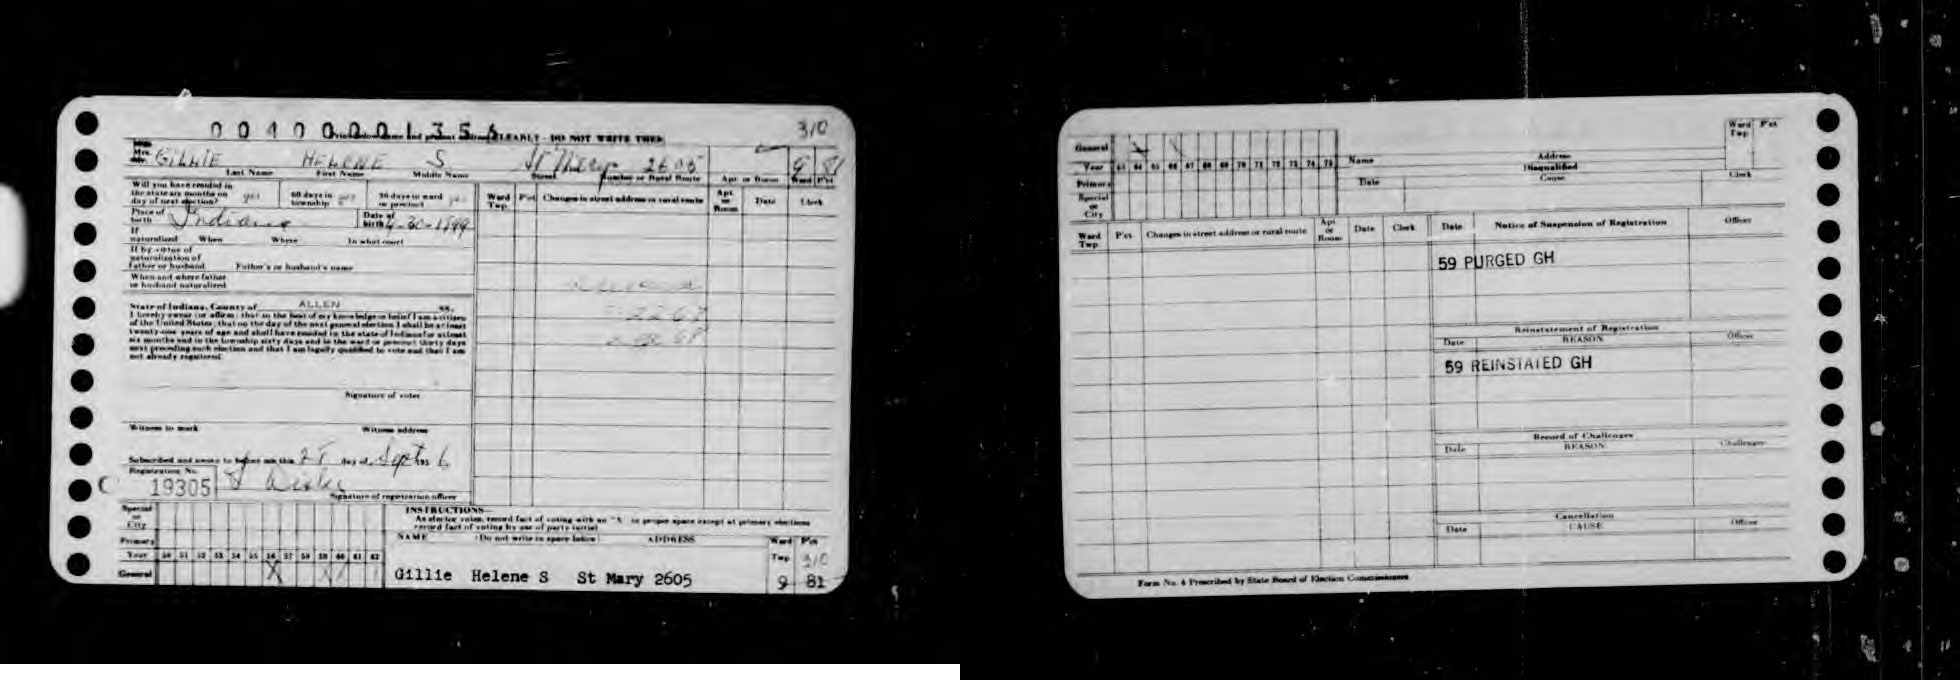 00400001356
CLEARLY - DO NOT WRITE THIS
310
Mrs. GILLIE HELENE S St Mary 2605 9 81
Last Name First Name Middle Name Street Number or Rural Route Apt or Room Ward P'ct
Will you have resided in the state six months on day of next election? yes 60 days in township yes 30 days in ward or precinct yes
Ward Twp. P'ct Changes in street address or rural route Apt or Room Date Clerk
Place of birth Indiana Date of birth -30-1899
If naturalized When Where In what court
If by virtue of naturalization of father or husband Father's or husband's name
When and where father or husband naturalized
State of Indiana, County of ALLEN ss.
I hereby swear (or affirm) that to the best of my knowledge or belief I am a citizen
of the United States; that on the day of the next general election I shall be at least
twenty-one years of age and shall have resided in the state of Indiana for at least
six months and in the township sixty days and in the ward or precinct thirty days
next preceding such election and that I am legally qualified to vote and that I am
not already registered.
Signature of voter
Witness to mark Witness address
Subscribed and sworn to before me this day of Sept 195 6
Registration No.
19305
Signature of registration officer
Special or City
Primary
Year 50 51 52 53 54 55 56 57 58 59 60 61 62
General X X X
INSTRUCTIONS—
As elector votes, record fact of voting with an "X" in proper space except at primary elections
record fact of voting by use of party initial
NAME (Do not write in space below) ADDRESS Ward Twp P'ct
310
Gillie Helene S St Mary 2605 9 81
General
Year 63 64 65 66 67 68 69 70 71 72 73 74 75
Primary
Special or City
Name Address Ward Twp P'ct
Disqualified
Date Cause Clerk
Ward Twp. P'ct Changes in street address or rural route Apt or Room Date Clerk
Date Notice of Suspension of Registration Officer
59 PURGED GH
Reinstatement of Registration
Date REASON Officer
59 REINSTATED GH
Record of Challenges
Date REASON Challenger
Cancellation
Date CAUSE Officer
Form No. 4 Prescribed by State Board of Election Commissioners